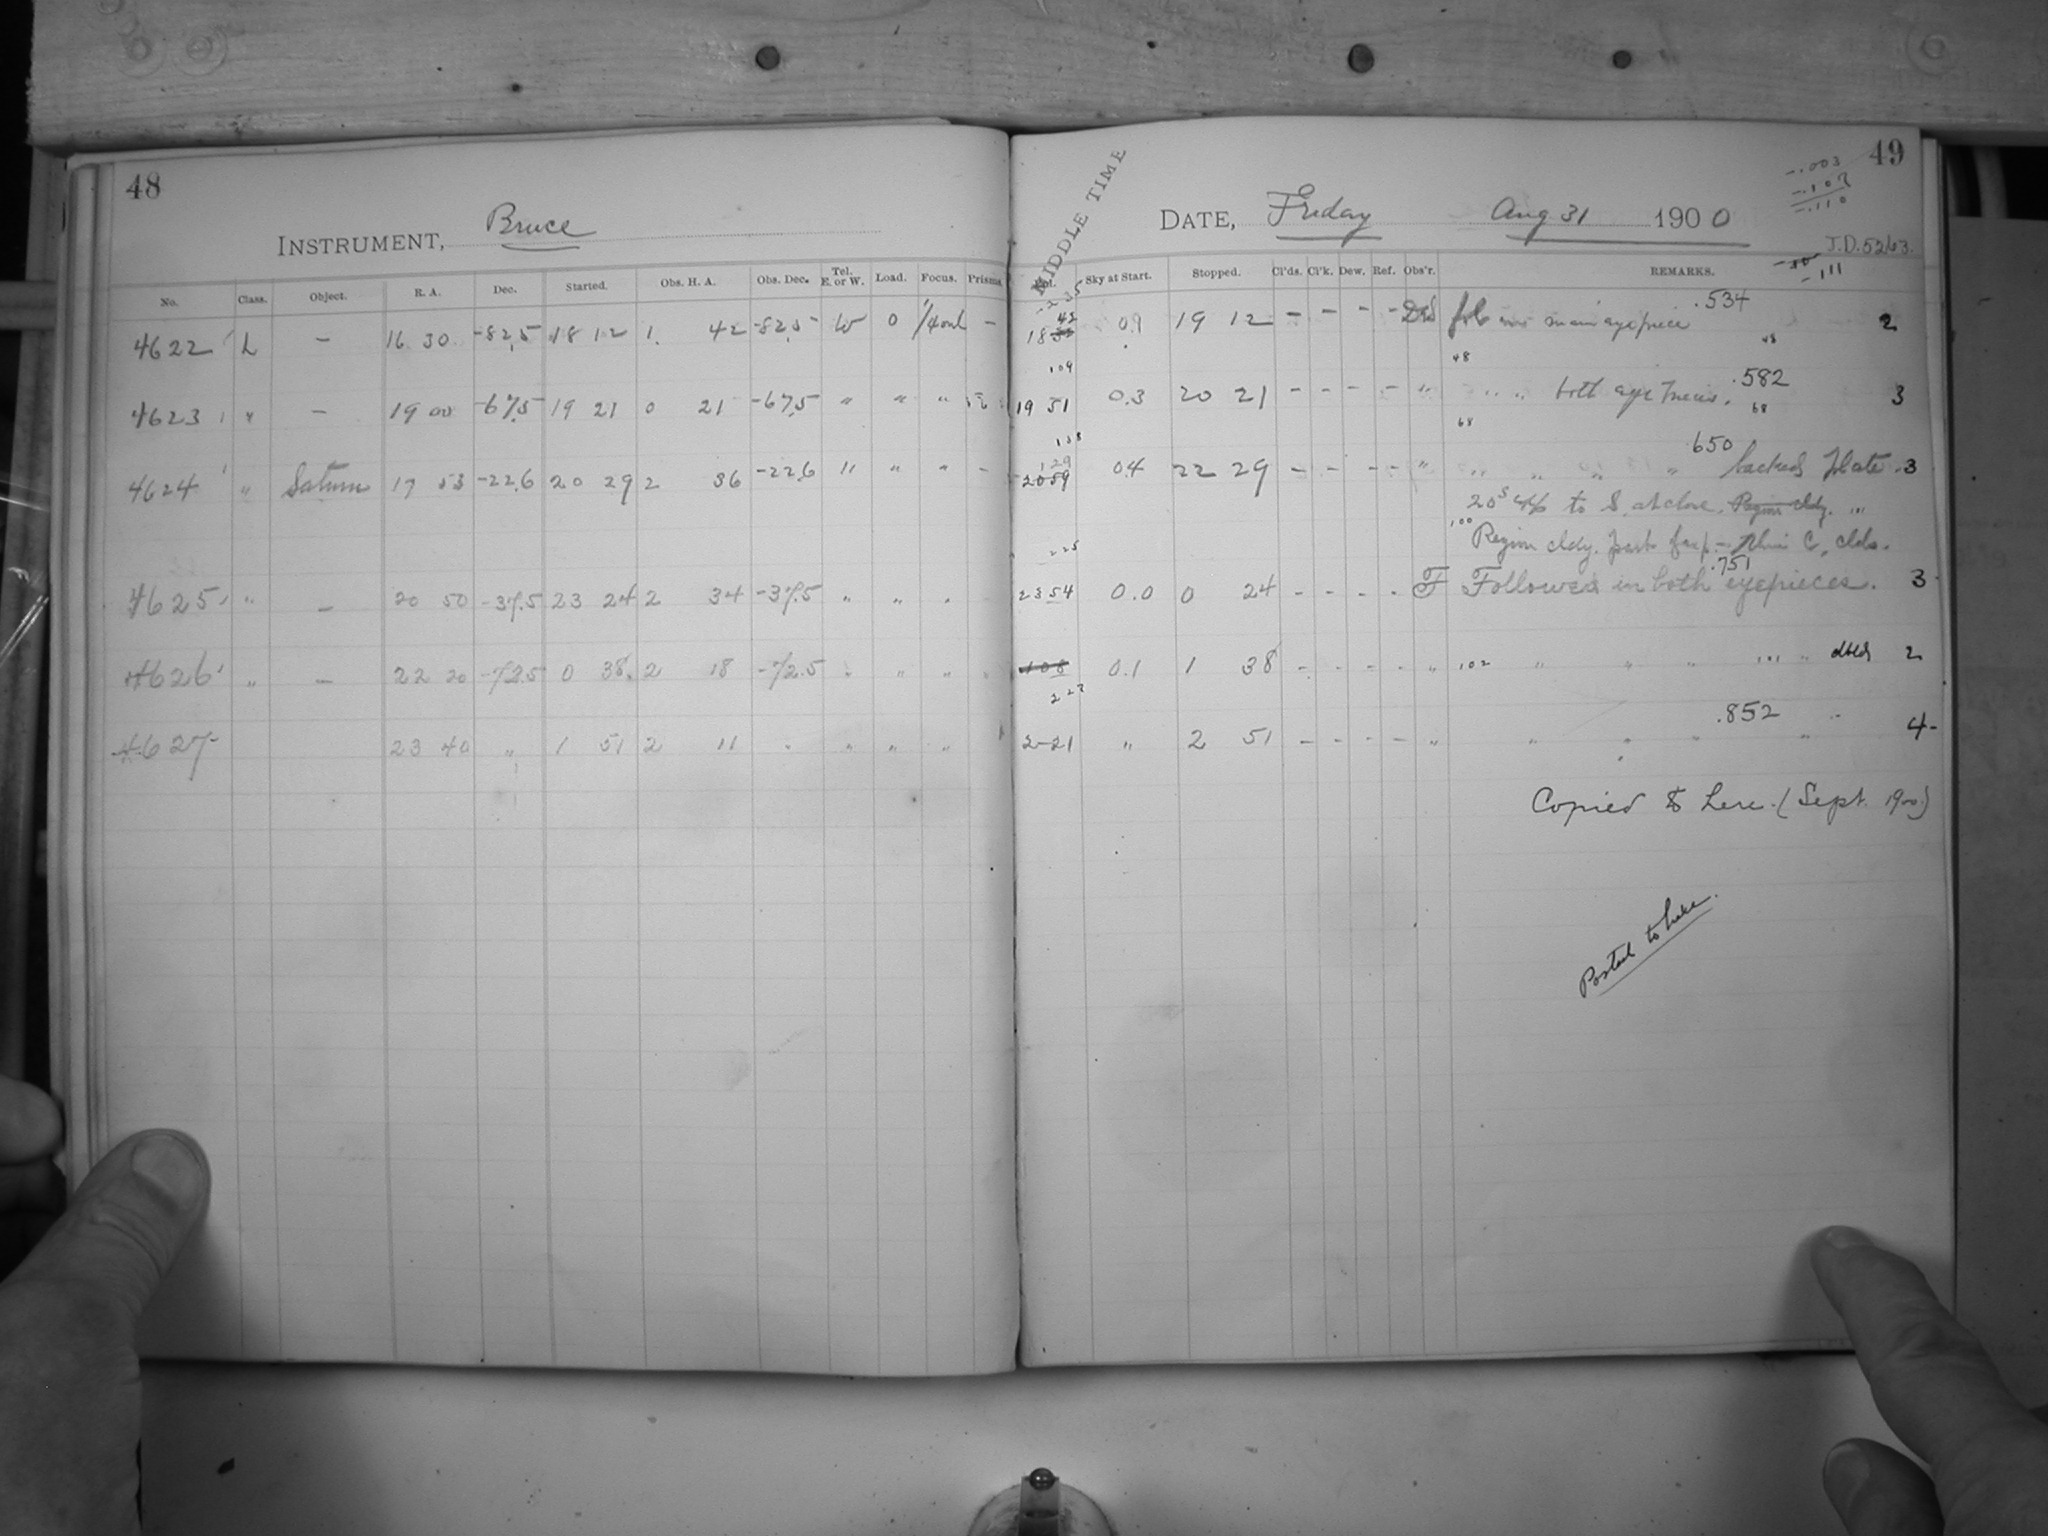 48
INSTRUMENT, Bruce
No. Class. Object. R. A. Dec. Started. Obs. H. A. Obs. Dec. Tel. E. or W. Load. Focus. Prisms.
4622 L — 16 30 -82.5 18 12 1 42 -82.5 W 0 1/4 out —
4623 " — 19 00 -67.5 19 21 0 21 -67.5 " " "
4624 " Saturn 17 53 -22.6 20 29 2 36 -22.6 " " " -
4625 " — 20 50 -37.5 23 24 2 34 -37.5 " " "
4626 " — 22 20 -72.5 0 38 2 18 -72.5 " " " "
4627 23 40 " 1 51 2 11 " " " "
49
MIDDLE TIME
DATE, Friday Aug 31 1900
-.003
-.107
-.110
J.D. 5263.
-.111
Sky at Start. Stopped. Cl'ds. Cl'k. Dew. Ref. Obs'r. REMARKS.
18 42 0.9 19 12 - - - - fol. in main eyepiece .534 2
48 48
109
19 51 0.3 20 21 - - - - " " " both eye pieces. .582 3
68 68
138
129
2059 04 22 29 - - - - " " " " " .650 backed plate 3
Region cldy.
100
Region cldy. part of exp. — thin C. clds.
225
2354 0.0 0 24 - - - - F Followed in both eyepieces. .751 3
108 0.1 1 38 - - - - " 102 " " " 101 " 2
223
2 21 " 2 51 - - - - " " " " .852 " 4
Copied to here (Sept. 1900)
Posted to here.